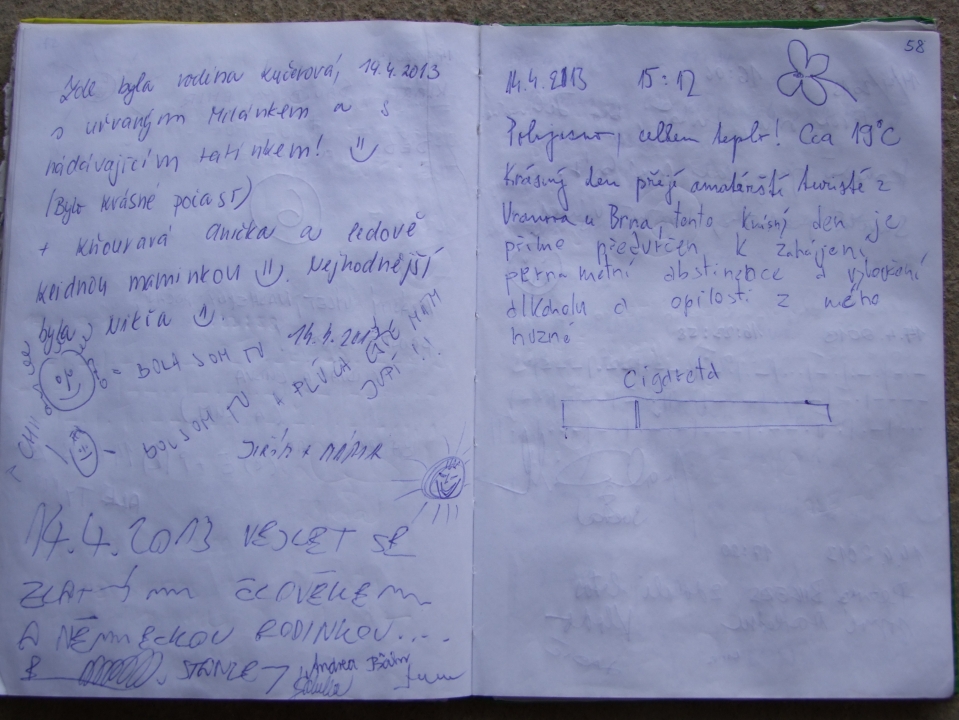 Zde byla rodina Kučerová, 14.4.2013
s uřvaným Milánkem a s
nadávajícím tatínkem!
(Bylo krásné počasí)
+ kňouravá Anička a ledově
klidnou maminkou. Nejhodnější
byla Nikča
14.4.2013
= BOLA SOM TU
BOL SOM TU A PLÚCA EŠTE MÁM
JUPÍ!!
14.4.2013 VÝLET SE
ZLATÝM ČLOVĚKEM
A NĚMECKOU RODINKOU....
Andrea
58
14.4.2013 15:12
Polojasno, celkem teplo! Cca 19°C
Krásný den přejí amatérští turisté z
Vranova u Brna, tento krásný den je
přímo předurčen k zahájení
abstinence a
alkoholu a opilosti z mého
Cigareta